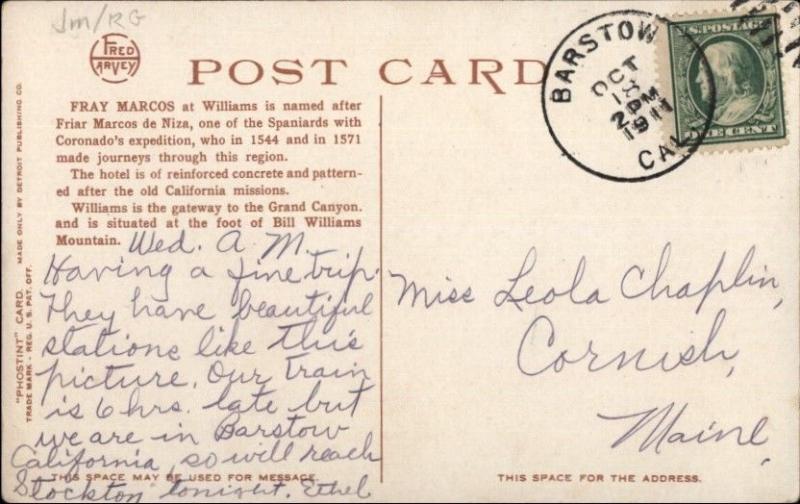 Jm/RG
FRED
HARVEY
POST CARD
BARSTOW
OCT
18
2 PM
1911
CAL.
U.S. POSTAGE
ONE CENT
FRAY MARCOS at Williams is named after
Friar Marcos de Niza, one of the Spaniards with
Coronado's expedition, who in 1544 and in 1571
made journeys through this region.
The hotel is of reinforced concrete and pattern-
ed after the old California missions.
Williams is the gateway to the Grand Canyon.
and is situated at the foot of Bill Williams
Mountain.
Wed. A. M.
Having a fine trip.
They have beautiful
stations like this
picture. Our train
is 6 hrs. late but
we are in Barstow
California, so will reach
Stockton tonight. Ethel
Miss Leola Chaplin,
Cornish,
Maine
THIS SPACE MAY BE USED FOR MESSAGE.
THIS SPACE FOR THE ADDRESS.
"PHOSTINT" CARD. MADE ONLY BY DETROIT PUBLISHING CO.
TRADE MARK - REG. U. S. PAT. OFF.